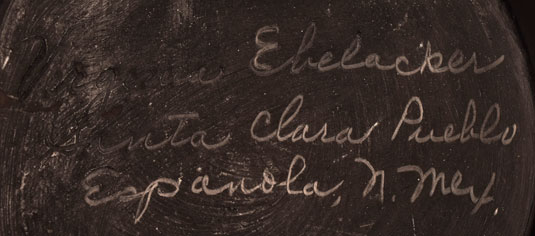 Virginia Ebelacker
Santa Clara Pueblo
Española, N. Mex.